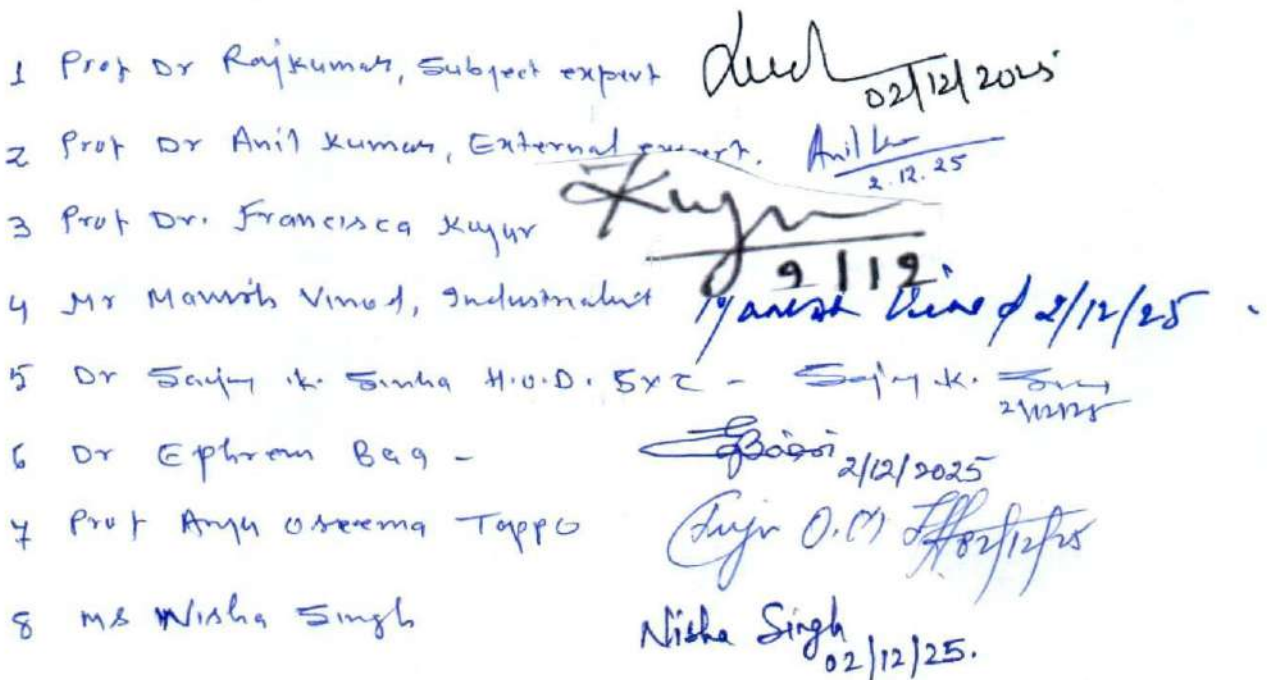 1 Prof Dr Rajkumar, Subject expert 02/12/2025
2 Prof Dr Anil Kumar, External expert. Anil Kr 2.12.25
3 Prof Dr. Francisca Kujur Kujur 2/12
4 Mr Manish Vinod, Industrialist Manish Vinod 2/12/25
5 Dr Sanjay .k. Sinha H.O.D. SXC - Sanjay .K. 2/12/25
6 Dr Ephrem Bag - 2/12/2025
7 Prof Anju Oseema Toppo 02/12/25
8 Ms Nisha Singh Nisha Singh 02/12/25.